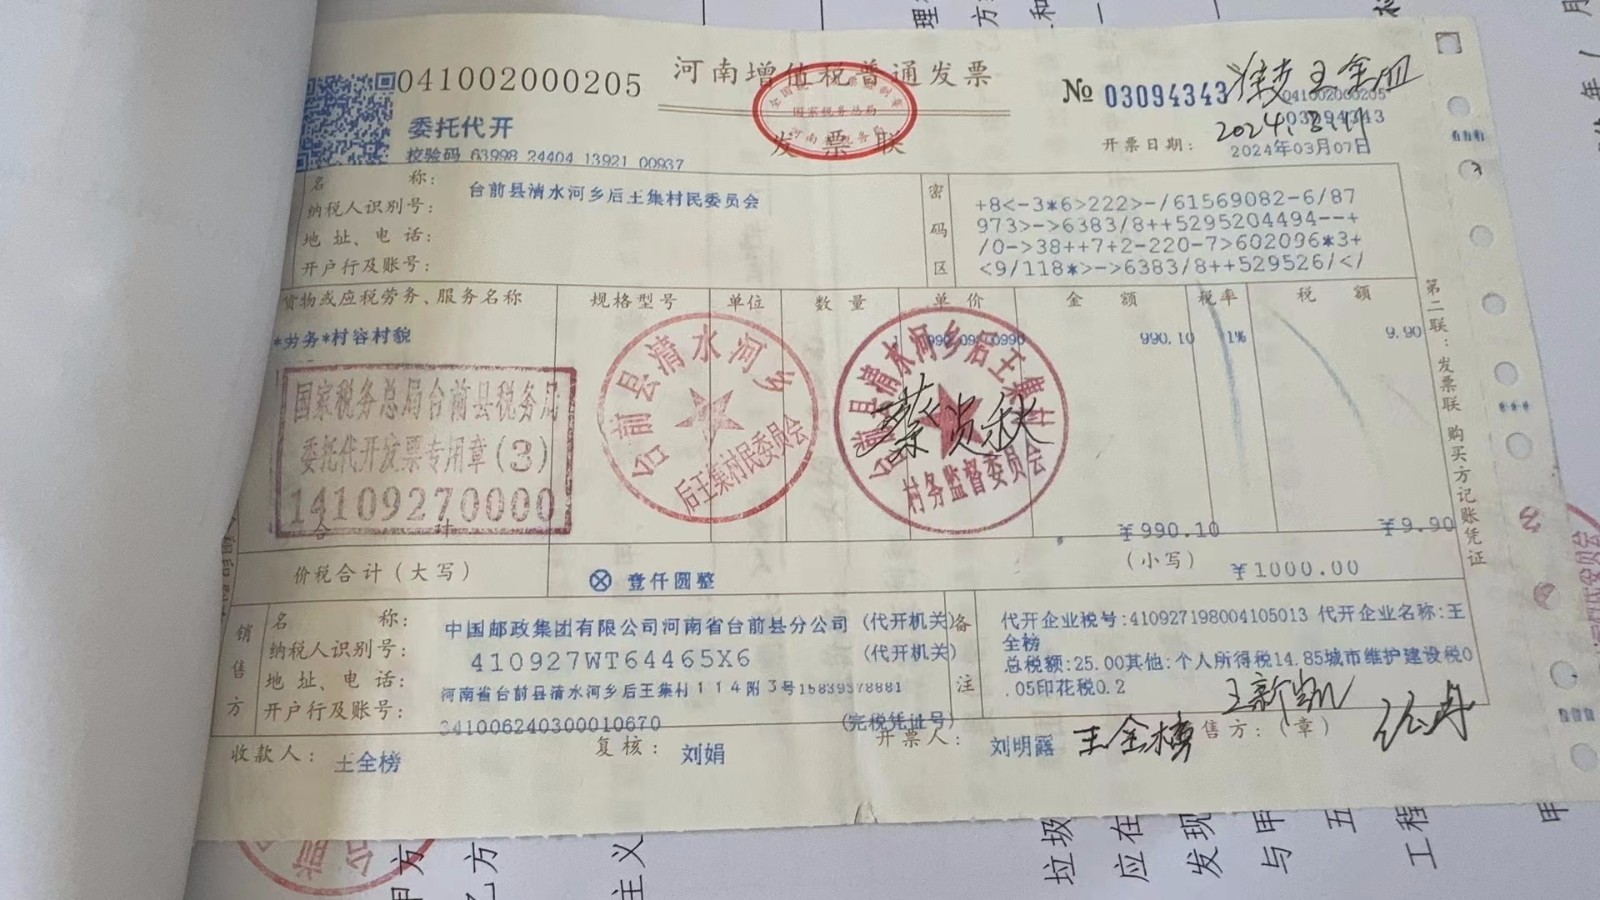 041002000205
河南增值税普通发票
№ 03094343
041002000205
03094343
委托代开
发票联
校验码 63998 24404 13921 00937
开票日期:
2024年03月07日
名称:
台前县清水河乡后王集村民委员会
纳税人识别号:
地址、电话:
开户行及账号:
密码区
+8<-3*6>222>-/61569082-6/87
973>->6383/8++5295204494--+
/0->38++7+2-220-7>602096*3+
<9/118*>->6383/8++529526/</
货物或应税劳务、服务名称 规格型号 单位 数量 单价 金额 税率 税额
*劳务*村容村貌 990.10 1% 9.90
国家税务总局台前县税务局
委托代开发票专用章(3)
14109270000
台前县清水河乡
后王集村民委员会
台前县清水河乡后王集村
村务监督委员会
合计 ¥990.10 ¥9.90
价税合计(大写) ⊗ 壹仟圆整 (小写) ¥1000.00
第二联:发票联 购买方记账凭证
销售方
名称: 中国邮政集团有限公司河南省台前县分公司 (代开机关)
纳税人识别号: 410927WT64465X6 (代开机关)
地址、电话: 河南省台前县清水河乡后王集村114附3号15839378881
开户行及账号: 341006240300010670 (完税凭证号)
备注
代开企业税号:410927198004105013 代开企业名称:王
全榜
总税额:25.00其他:个人所得税14.85城市维护建设税0
.05印花税0.2
收款人: 王全榜 复核: 刘娟 开票人: 刘明露 王全榜 售方:(章)
甲方
乙方
主义
垃圾
应在
发现
与甲
五
工程